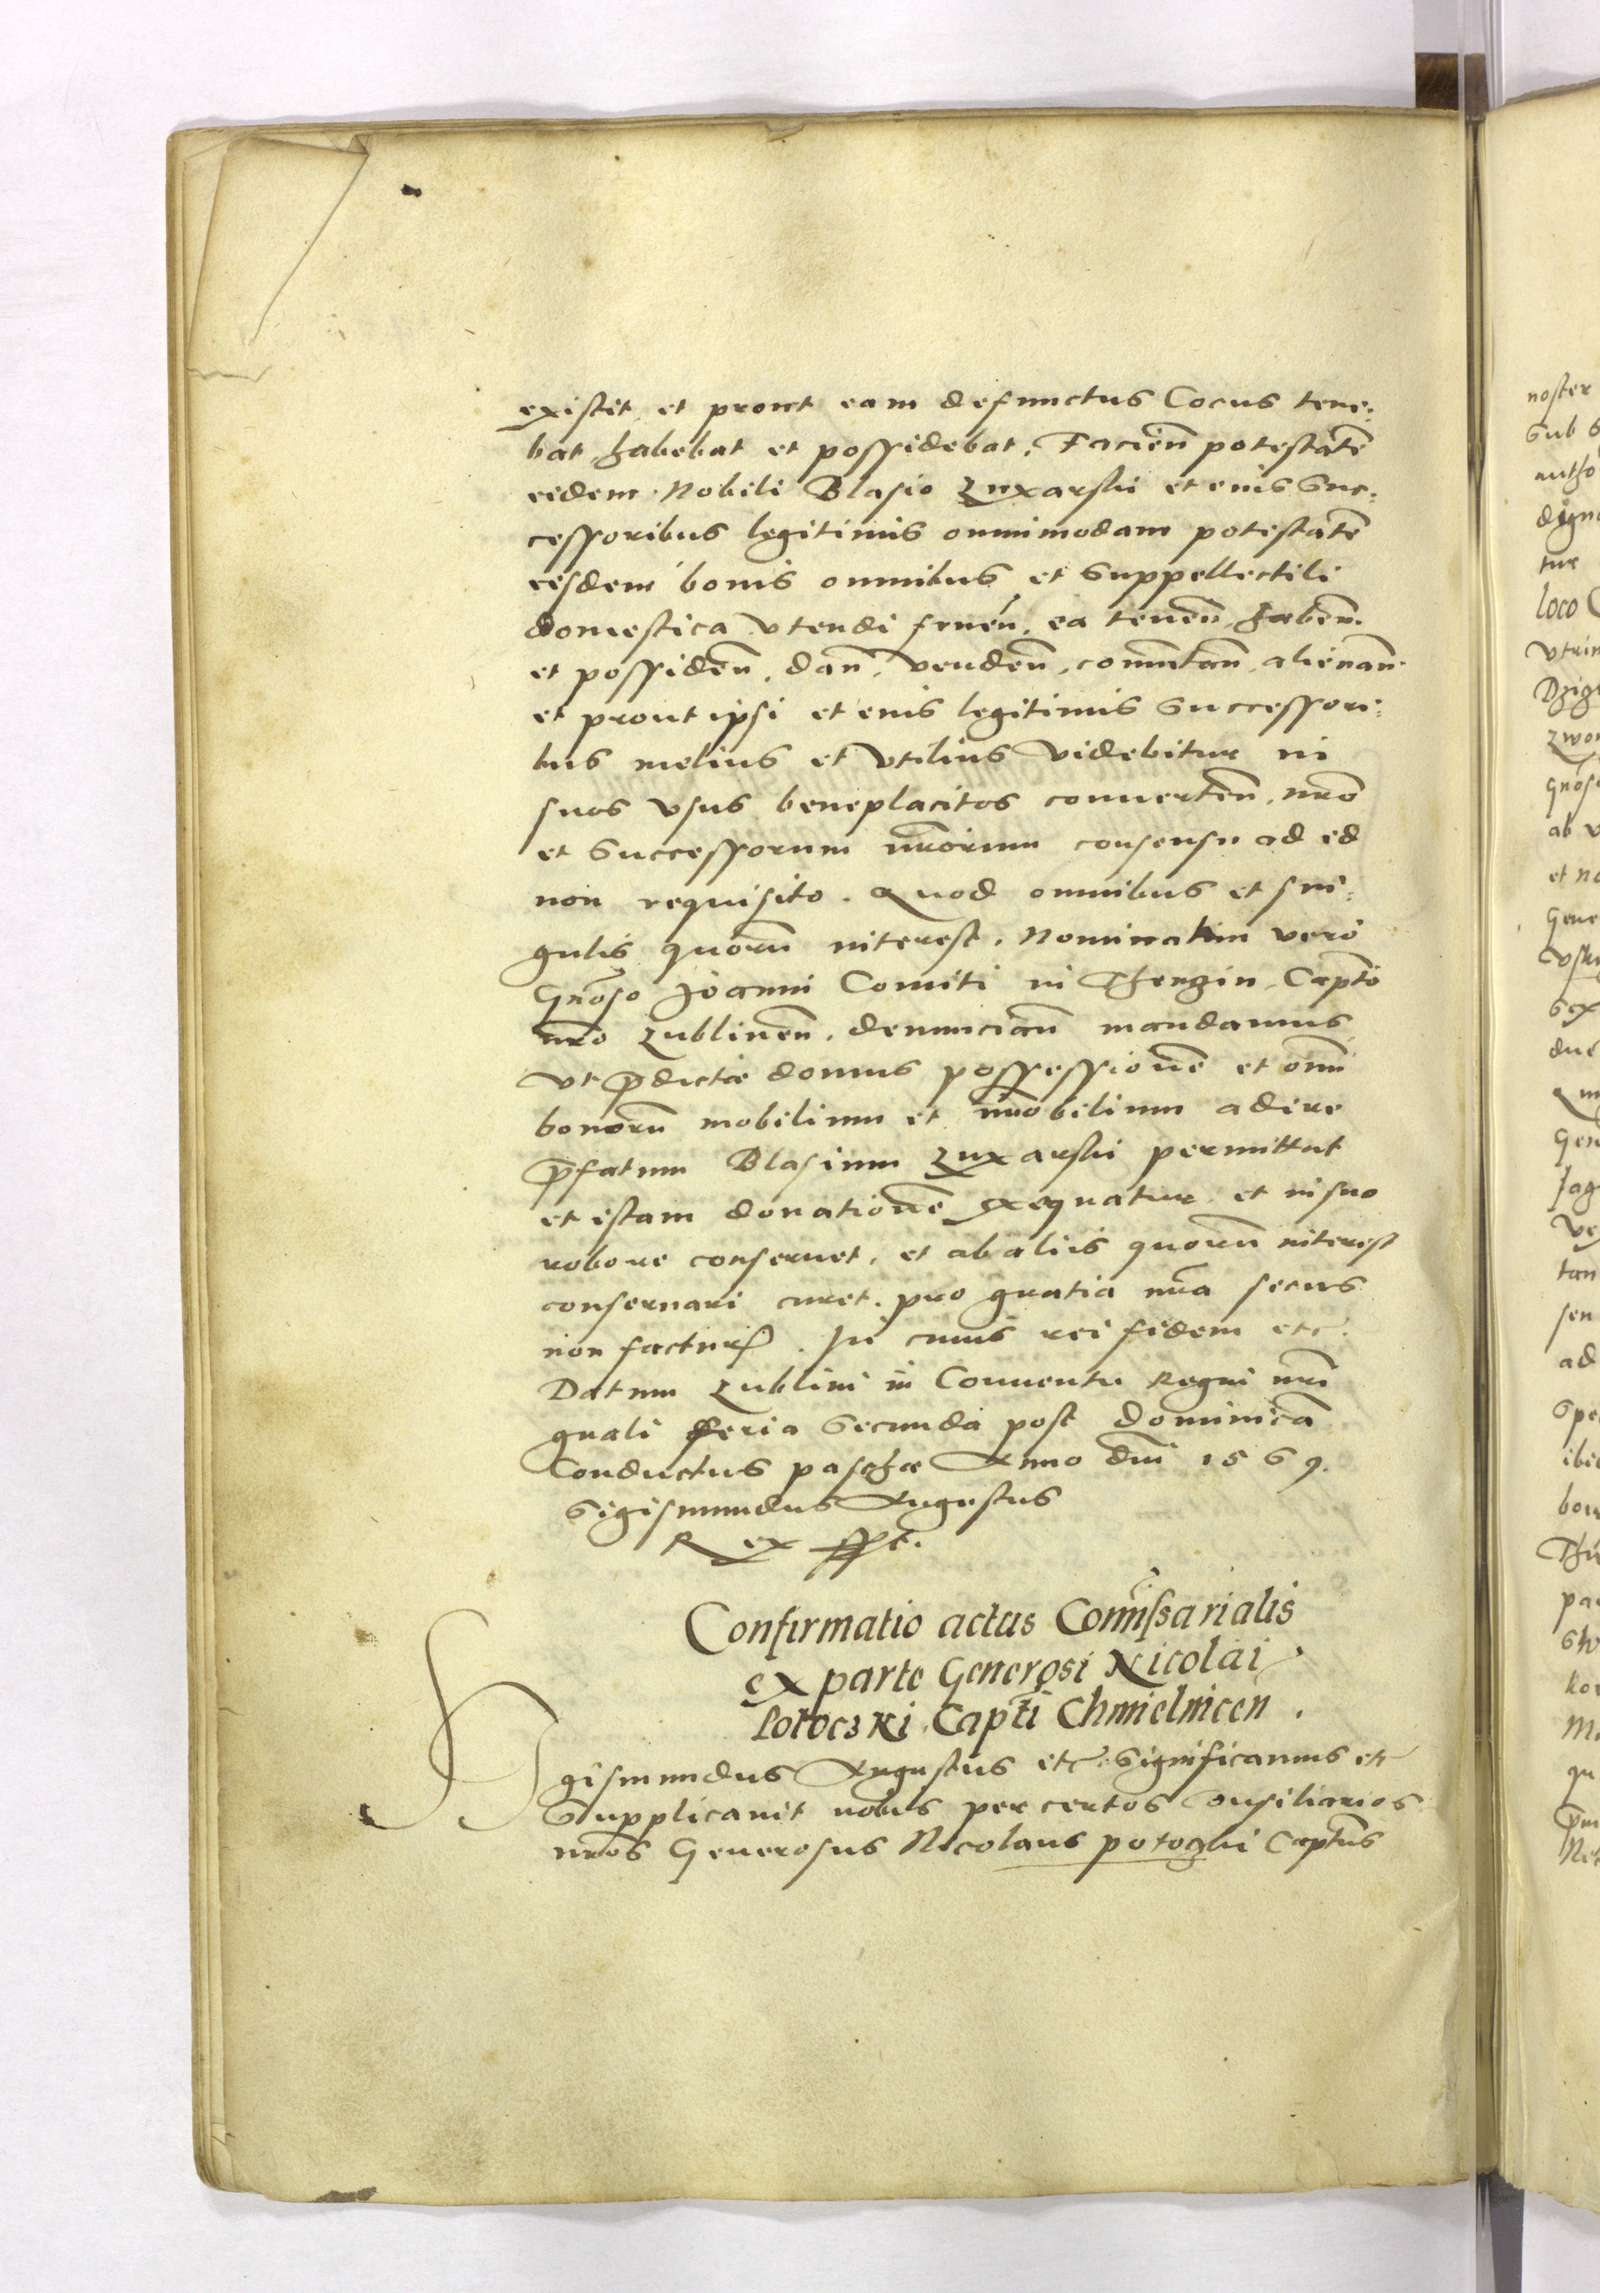 existit et prout eam defunctus Cocus tene:
bat habebat et possidebat. Facien̄ potestatē
eidem Nobili Blasio Luxarski et eius Suc:
cessoribus legitimis omnimodam potestatē
eisdem bonis omnibus et Suppellectili
domestica vtendi fruen̄, ea tenen̄, haben̄.
et possiden̄, dan̄, venden̄, com̄utan̄, alienan̄.
et prout ipsi et eius legitimis Successori:
bus melius et vtilius videbitur in
suos vsus beneplacitos conuerten̄, nr̄o
et Successorum nr̄orum consensu ad ed
non requisito. Quod omnibus et sin:
gulis quorū interest, Nominatim vero
Gn̄oso Joanni Comiti in Thenzin, Captō
nr̄o Lublinen̄, denuncian̄ mandamus
vt p̄dictæ domus possessionē et om̄
bonorū mobilium et im̄obilium adire
p̄fatum Blasium Luxarski permittat
et istam donationē exequatur et in suo
robore conseruet, et ab aliis quorū interest
conseruari curet. pro gratia nr̄a secus
non factur. In cuius rei fidem etc.
Datum Lublini in Conuentu Regni nr̄i
gn̄ali feria Secunda post dominicā
Conductus paschæ Anno dn̄i 1569.
Sigismundus Augustus
Rex sst.
Confirmatio actus Com̄issarialis
ex parte Generosi Nicolai
Potoczki Captī Chmielnicen̄.
Sigismundus Augustus etc. Significamus etc
Supplicauit nobis per certos Consiliarios
nr̄os Generosus Nicolaus potozki Captūs
noster
Sub
autho
digni
tur
loco
vtrin
zwo
Gnōs
ab
et no
Gene
due
Gen
Jag
tan
sen
ad
Spe
bon
pa
qu